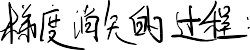 梯度消失的过程: